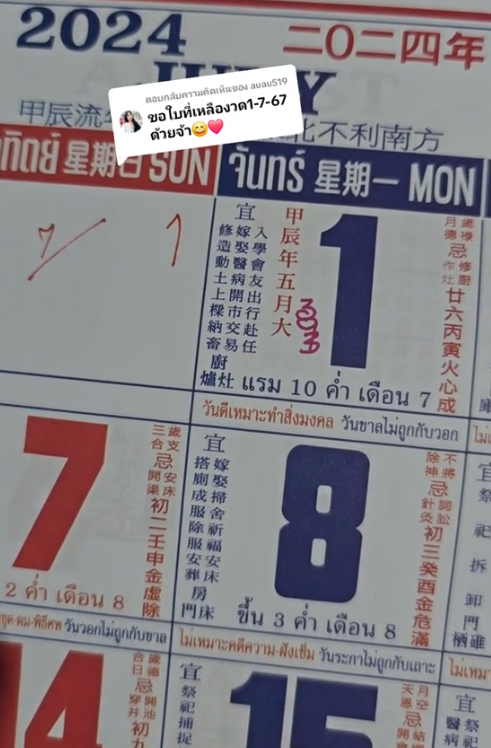 2024
二〇二四年
JULY
ตอบกลับความคิดเห็นของ auau519
ขอใบที่เหลืองวด1-7-67
ด้วยจ้า😊❤️
甲辰流年
北不利南方
ทิตย์ 星期日 SUN
จันทร์ 星期一 MON
宜
修造動土上樑納畜
嫁娶醫病開市交易
入學會友出行赴任
廚爐灶
甲辰年五月大
1
忌
廿六丙寅火心成
แรม 10 ค่ำ เดือน 7
วันดีเหมาะทำสิ่งมงคล วันขาลไม่ถูกกับวอก
7
三合
歲支
忌
開渠
安床
初二壬申金虛除
2 ค่ำ เดือน 8
วันวอกไม่ถูกกับขาล
宜
搭廁成服除服安葬
嫁娶掃舍祈福安床
房門床
8
除神
不將
忌
針灸
詞訟
初三癸酉金危滿
ขึ้น 3 ค่ำ เดือน 8
ไม่เหมาะคดีความ-ฝังเข็ม วันระกาไม่ถูกกับเถาะ
宜
祭
祀
拆
卸
門
ไม่เหมา
14
忌
初九
宜
祭祀捕捉
15
天恩
月空
忌
宜